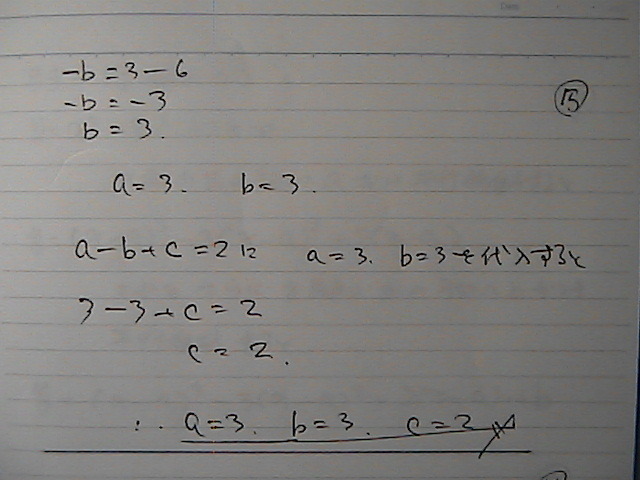 -b = 3 - 6
⑮
-b = -3
b = 3.
a = 3. b = 3.
a - b + c = 2 に a = 3. b = 3 を代入すると
3 - 3 + c = 2
c = 2.
∴ a = 3. b = 3. c = 2